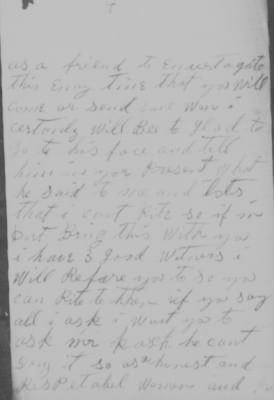 as a friend to
this Eney time that you Will
Come or send sure Wen i
certenly Will Bee to glad to
go to his face and tell
him in yor Present What
he said to me and lots
that i cant Rite so if
Dont Bring this With you
i have 3 good Witness i
Will Refare you to so you
can Rite to them if you say
all i ask i Want you to
ask mr he cant
it so as honest and
Respetabel Women and